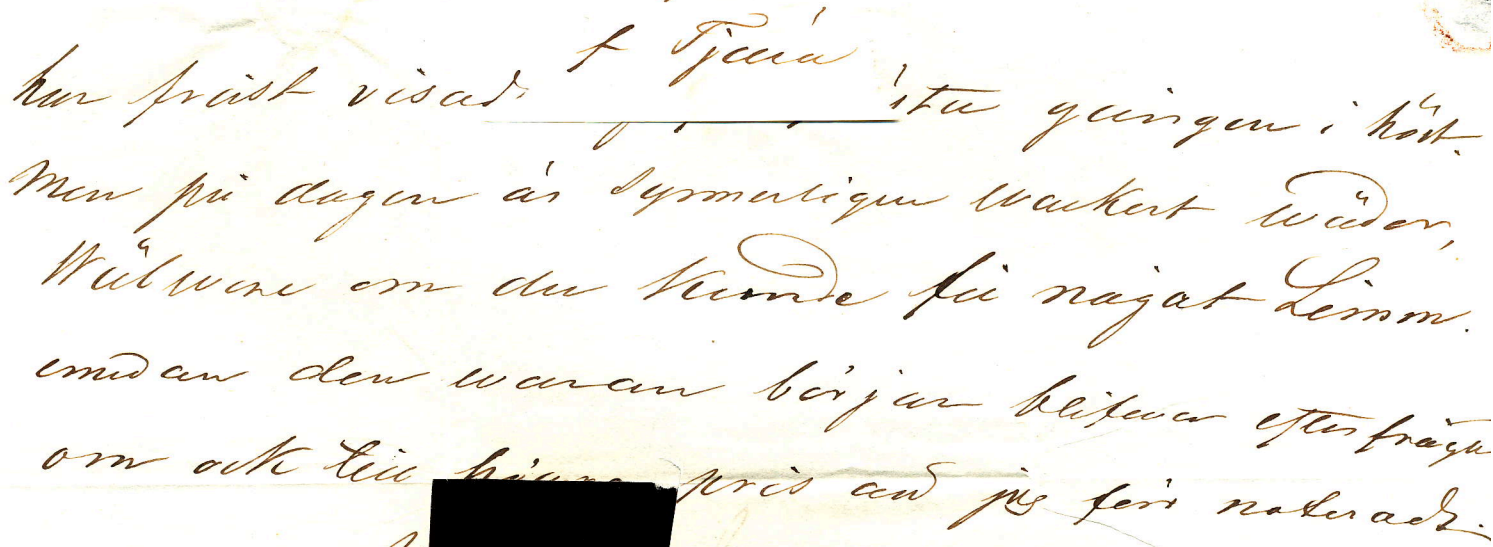 f Tjära
har fräst visad ista gången i höst.
Men på dagen är Synnerligen wackert wäder,
Wäl wore om du kunde få något Linson.
emedan den waran börjar blifwa efterfråga
om ock till högre pris än jag förr noteradt.